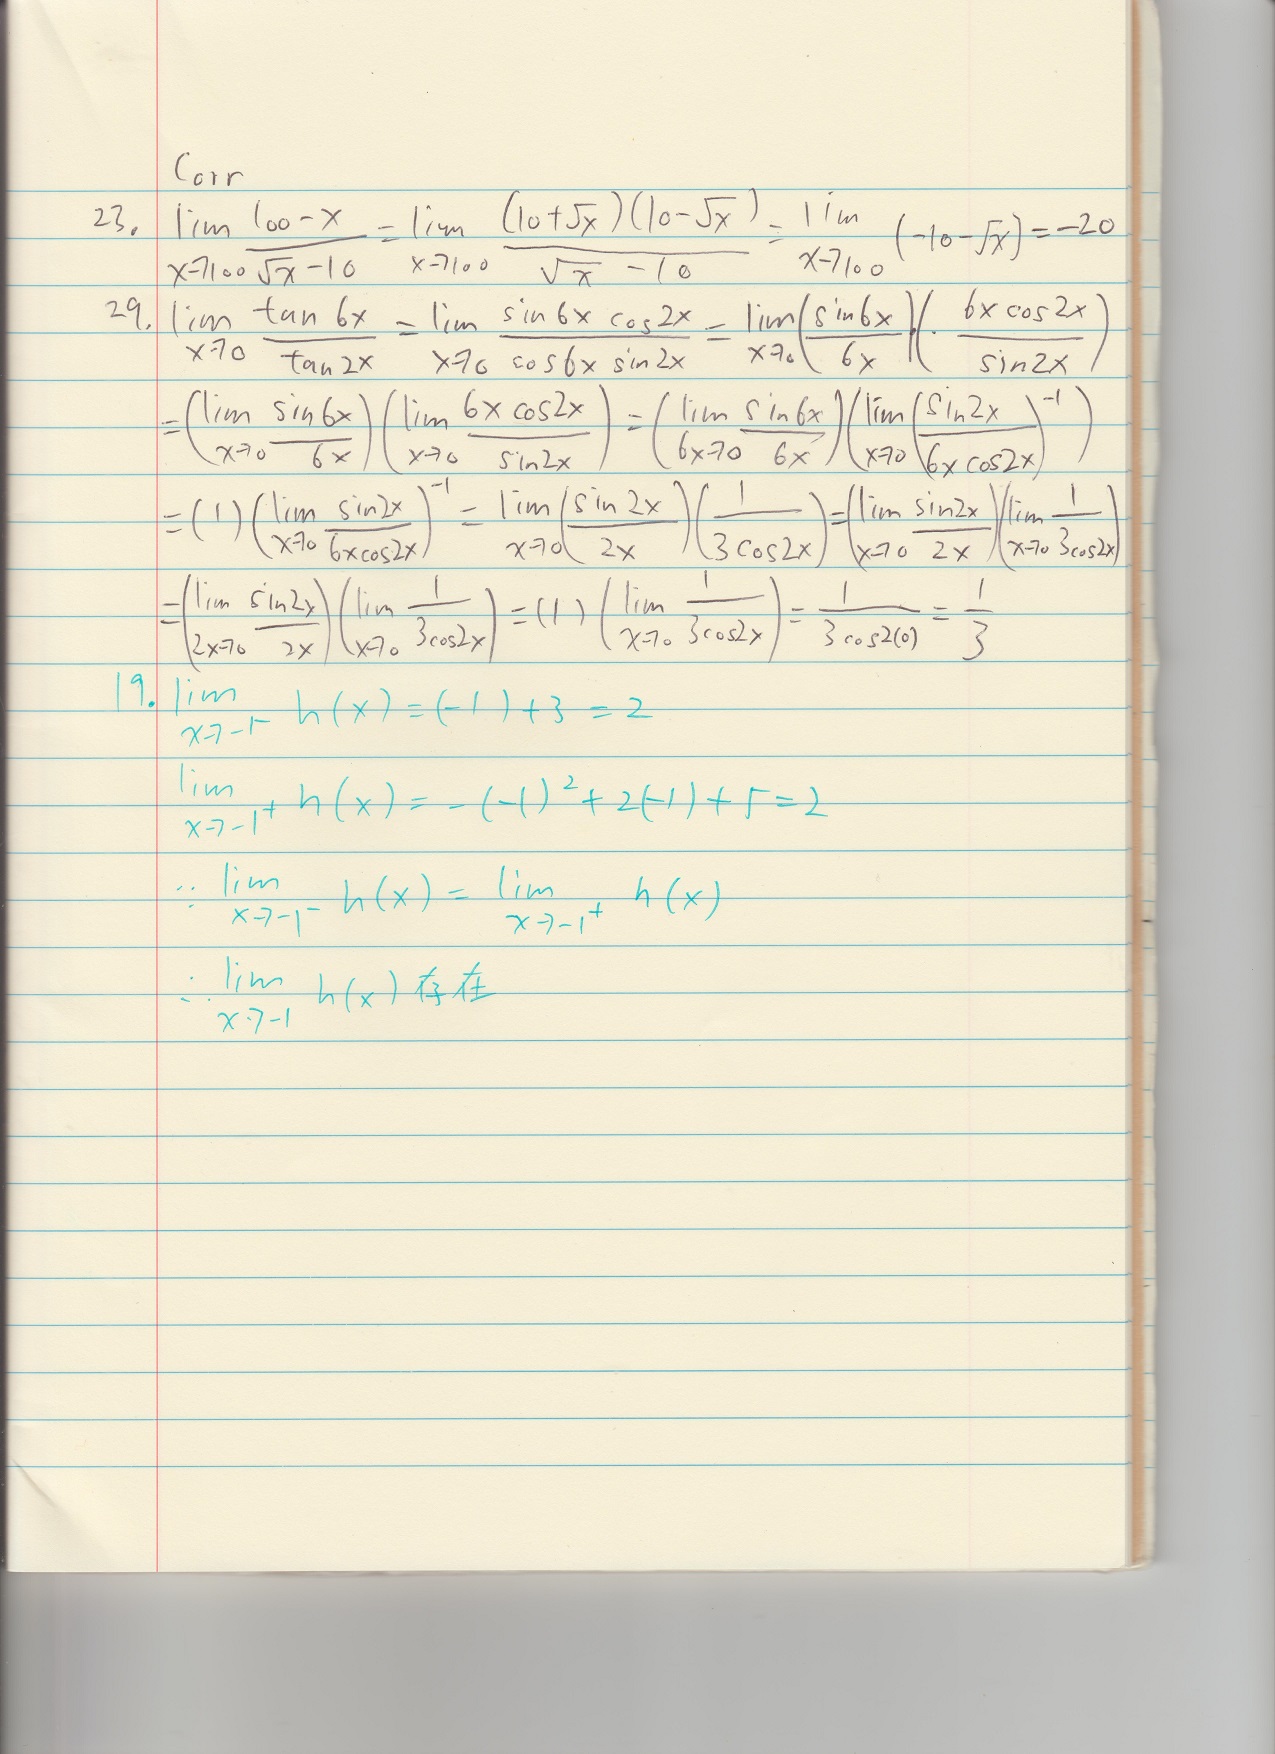 Corr
23. lim_{x→100} (100-x)/(√x-10) = lim_{x→100} ((10+√x)(10-√x))/(√x-10) = lim_{x→100} (-10-√x) = -20
29. lim_{x→0} (tan 6x)/(tan 2x) = lim_{x→0} (sin 6x cos 2x)/(cos 6x sin 2x) = lim_{x→0} ((sin 6x)/(6x)) (· (6x cos 2x)/(sin 2x))
= (lim_{x→0} (sin 6x)/(6x)) (lim_{x→0} (6x cos 2x)/(sin 2x)) = (lim_{6x→0} (sin 6x)/(6x)) (lim_{x→0} ((sin 2x)/(6x cos 2x))^{-1})
= (1) (lim_{x→0} (sin 2x)/(6x cos 2x))^{-1} = lim_{x→0} ((sin 2x)/(2x)) (1/(3 cos 2x)) = (lim_{x→0} (sin 2x)/(2x)) (lim_{x→0} 1/(3 cos 2x))
= (lim_{2x→0} (sin 2x)/(2x)) (lim_{x→0} 1/(3 cos 2x)) = (1) (lim_{x→0} 1/(3 cos 2x)) = 1/(3 cos 2(0)) = 1/3
19. lim_{x→-1^-} h(x) = (-1)+3 = 2
lim_{x→-1^+} h(x) = -(-1)^2+2(-1)+5 = 2
∵ lim_{x→-1^-} h(x) = lim_{x→-1^+} h(x)
∴ lim_{x→-1} h(x) 存在